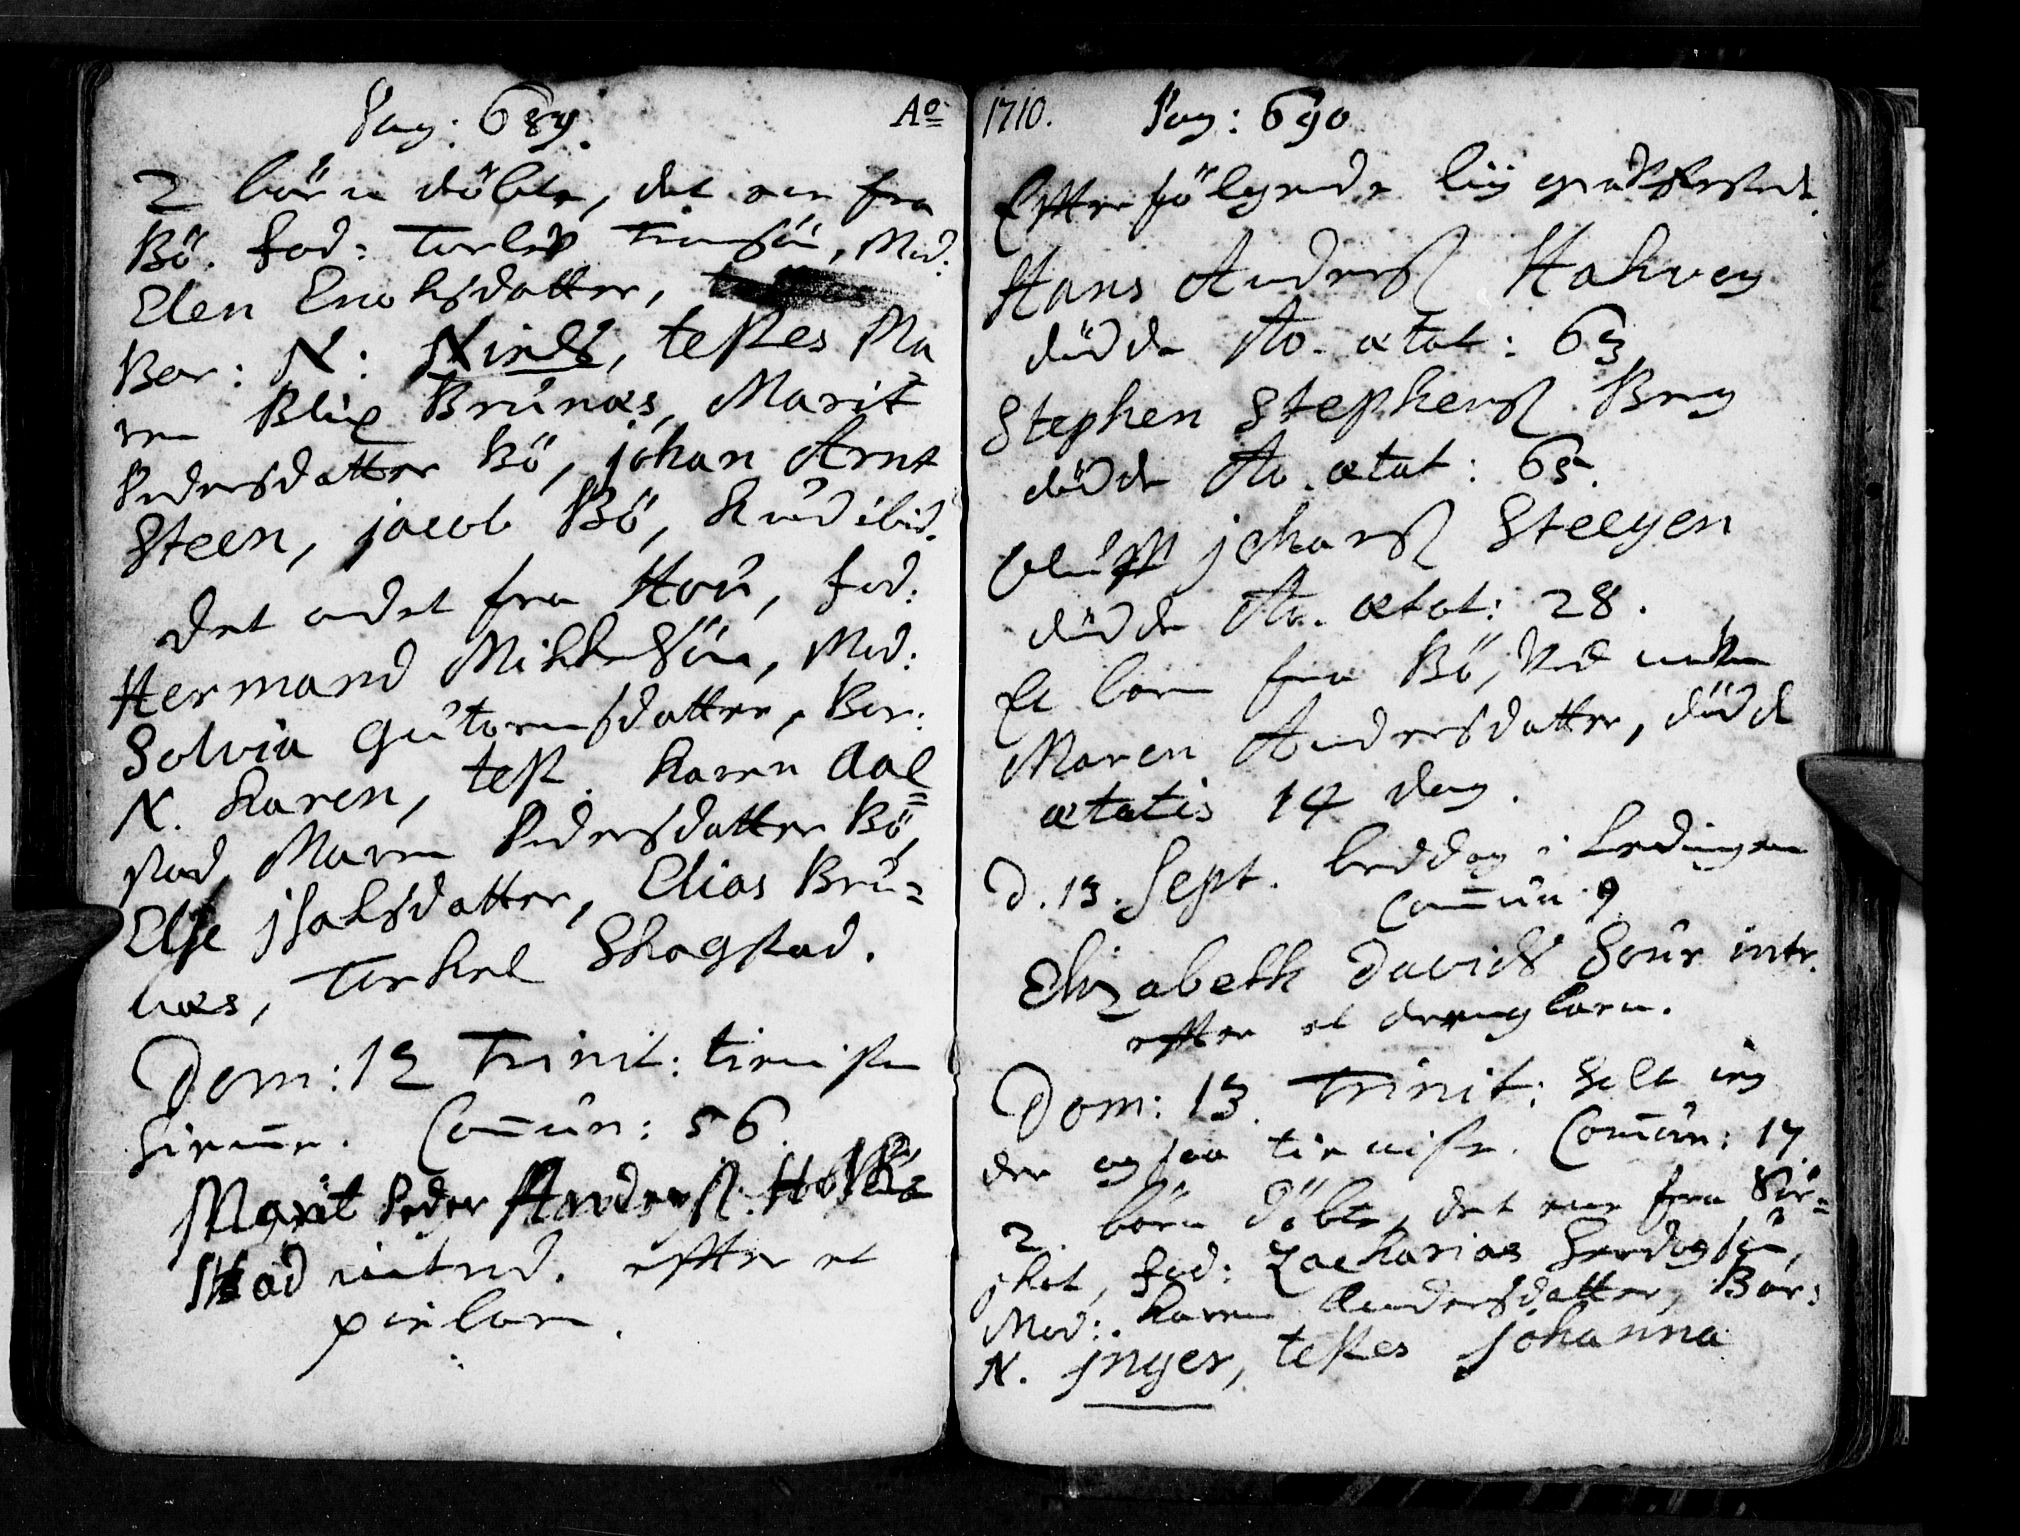 Pag: 689.
Ao
2 börn döbte, det ene fra
Bö. fad: Torleif Tronsön, Mod:
Elen Enoksdatter,
Bar: N: Niels, testes Ma
ren Blix Brunæs, Marit
Pedersdatter Bö, johan Arnt
Steen, jacob Bö, Knud ibid.
det andet fra Hou, fad:
Hermand Mikkelsön, Mod:
Solvia Gutormsdatter, Bar:
N. Karen, test. Karen Aal=
stad, Maren Pedersdatter Bö,
Else jsaksdatter, Elias Bru=
næs, Torkel Skagstad.
Dom: 12 Trinit: tieniste
hieme. Comun: 56.
Marit Peder Anderss.
stad introd. efter et
piebarn.
1710.
Pag: 690
Efterfölgende liig
Hans Anderss Hakvog
döde Ao. ætat: 63
Stephen Stephenss Berg
döde Ao. ætat: 65.
Oluff johanss Steegen
döde Ao. ætat: 28.
Et barn fra Bö, ved nafn
Maren Andersdatter, döde
ætatis 14 dag.
D. 13. Sept. beddag i Ledingen
Comun 9
Elizabeth Davids Sour intr.
efter et drengbarn.
Dom: 13. Trinit: holt ieg
der ogsaa tieniste. Comun: 17.
2. börn döbte, det ene fra Kör=
sket, fad: Zacharias
Mod: Karen Andersdatter, Bar:
N. jnger, testes johanna